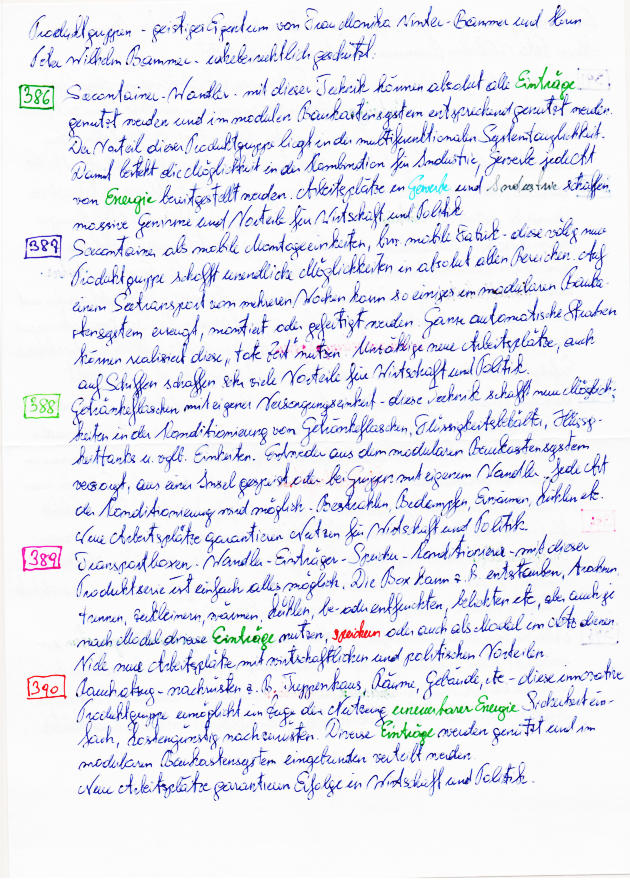 Produktgruppen - geistiges Eigentum von Frau Monika Winter-Bammer und Herrn
Peter Wilhelm Bammer - urheberrechtlich geschützt.
386 Seecontainer-Wandler - mit dieser Technik können absolut alle Einträge
genutzt werden und im modularen Baukastensystem entsprechend genutzt werden.
Der Vorteil dieser Produktgruppe liegt in der multifunktionalen Systemtauglichkeit.
Damit besteht die Möglichkeit in der Kombination für Industrie, Gewerbe jede Art
von Energie bereitgestellt werden. Arbeitsplätze in Gewerbe und Industrie schaffen
massive Gewinne und Vorteile für Wirtschaft und Politik
387 Seecontainer als mobile Montageeinheiten, bzw. mobile Fabrik - diese völlig neue
Produktgruppe schafft unendliche Möglichkeiten in absolut allen Bereichen. Auf
einem Seetransport von mehreren Wochen kann so einiges im modularen Bauka-
stensystem erzeugt, montiert oder gefertigt werden. Ganze automatische Strassen
können realisiert diese, tote Zeit nutzen. Unzählige neue Arbeitsplätze, auch
auf Schiffen schaffen sehr viele Vorteile für Wirtschaft und Politik.
388 Getränkeflaschen mit eigener Versorgungseinheit - diese Technik schafft neue Möglich-
keiten in der Konditionierung von Getränkeflaschen, Flüssigkeitsbehälter, Flüssig-
keittanks u. vglb. Einheiten. Entweder aus dem modularen Baukastensystem
versorgt, aus einer Insel gespeist oder bei Gruppen mit eigenem Wandler. Jede Art
der Konditionierung wird möglich - Bestrahlen, Bedampfen, Erwärmen, kühlen etc.
Neue Arbeitsplätze garantieren Nutzen für Wirtschaft und Politik.
389 Transportboxen - Wandler - Einträger - Speicher - Konditionierer - mit dieser
Produktserie ist einfach alles möglich. Die Box kann z.B. entstauben, trocknen,
trennen, zerkleinern, wärmen, kühlen, be- oder entfeuchten, belüften etc, aber auch je
nach Modul diverse Einträge nutzen, speichern oder auch als Modul im Netz dienen.
Viele neue Arbeitsplätze mit wirtschaftlichen und politischen Vorteilen.
390 Rauchabzug - nachrüsten z.B. Treppenhaus, Räume, Gebäude, etc - diese innovative
Produktgruppe ermöglicht im Zuge der Nutzung erneuerbarer Energie Sicherheit ein-
fach, kostengünstig nachzurüsten. Diverse Einträge werden genützt und im
modularen Baukastensystem eingebunden verteilt werden.
Neue Arbeitsplätze garantieren Erfolge in Wirtschaft und Politik.